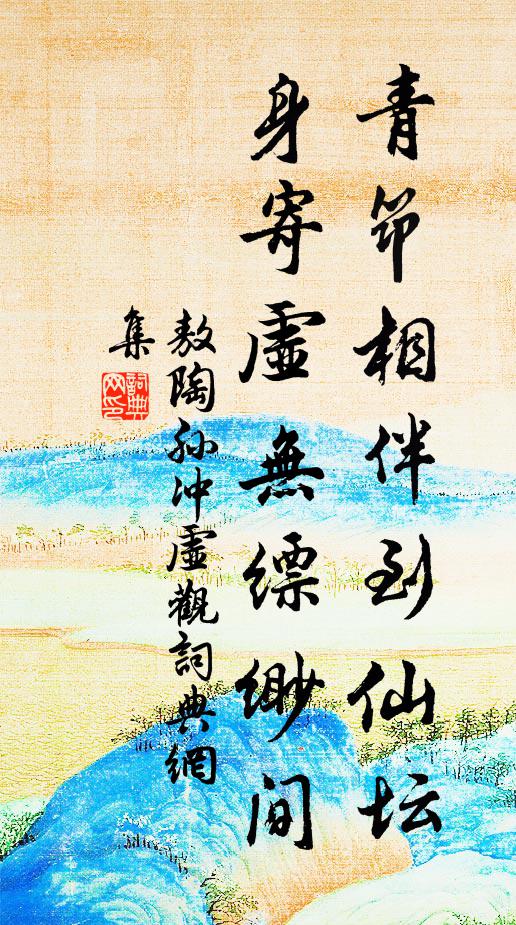 青笻相伴到仙坛
身寄虛無縹緲間
敖陶孙冲虛觀詞典網
集
詞典
网印